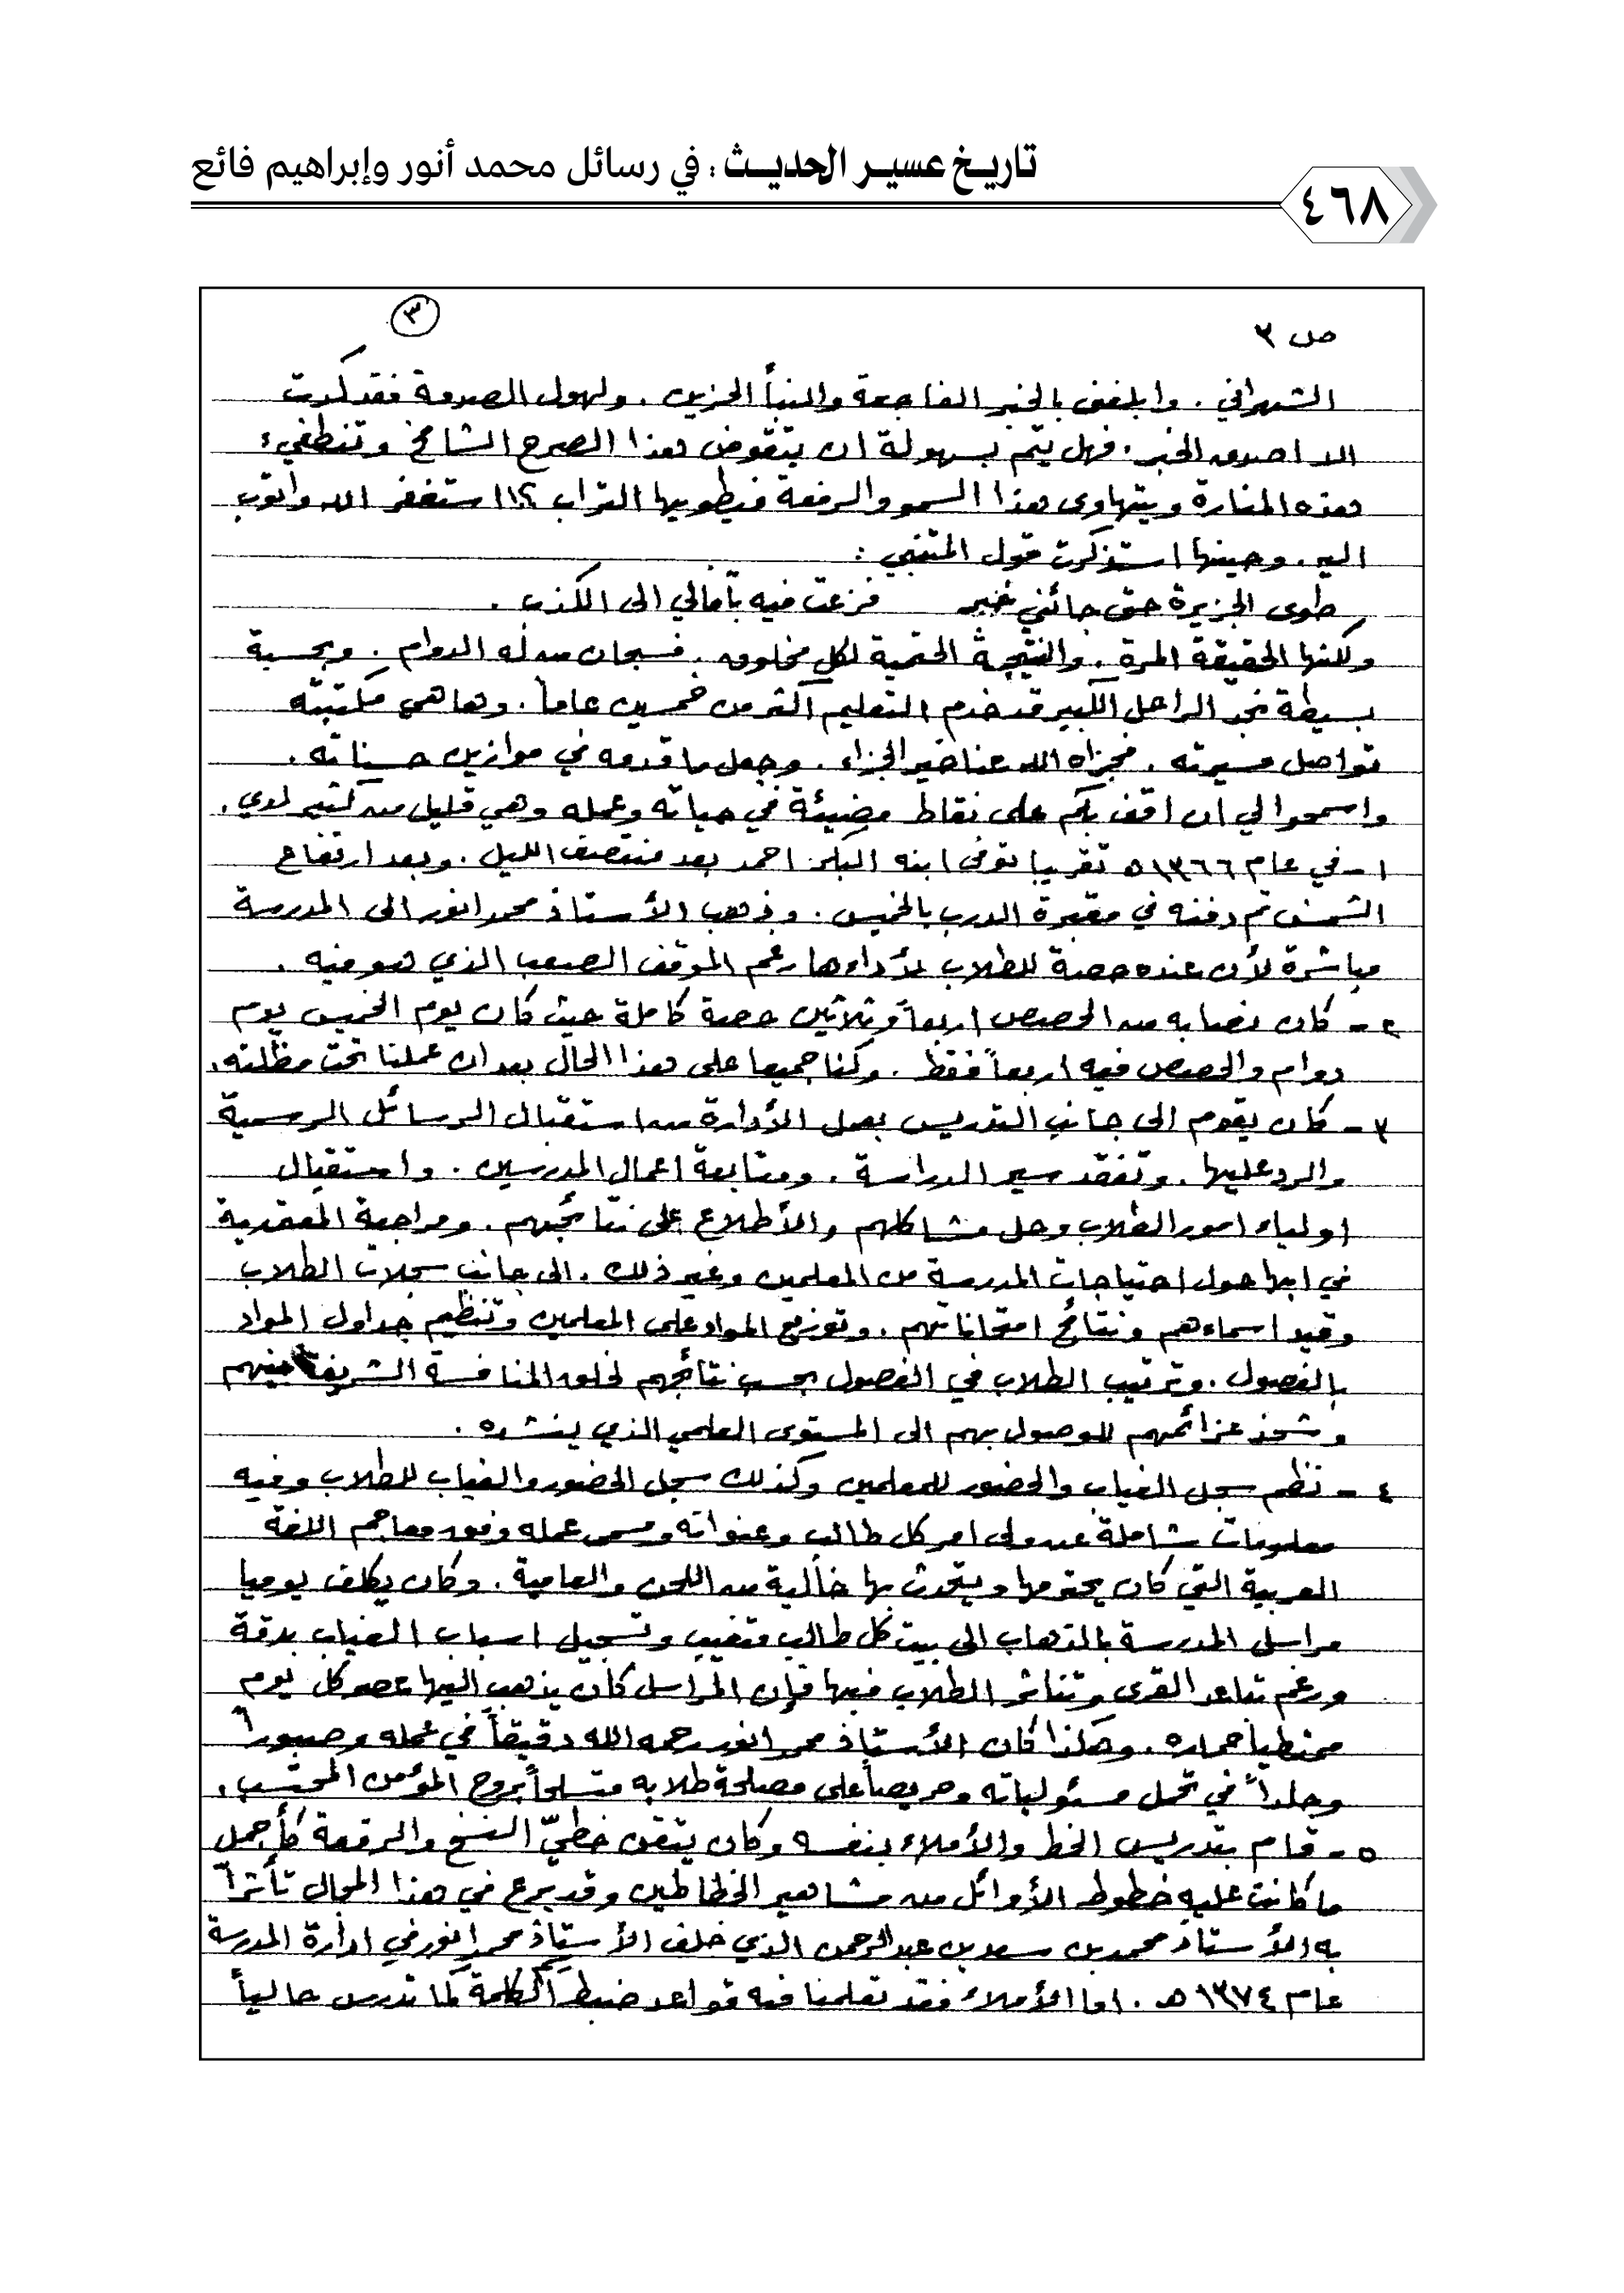 تاريخ عسير الحديث : في رسائل محمد أنور وإبراهيم فائع
٤٦٨
ص ٣
٣
الشهراني . وابلغني بالخبر الفاجعة والنبأ الحزين . ولهول الصدمة فقد كدت
الا اصدق الخبر . فهل يتم بسهولة ان يتقوض هذا الصرح الشامخ وتنطفيء
هذه المنارة ويتهاوى هذا السمو والرفعة فيطويها التراب ؟! استغفر الله واتوب
اليه . وحينها استذكرت قول المتنبي :
طوى الجزيرة حتى جائني خبر فزعت فيه بآمالي الى الكذب .
ولكنها الحقيقة المرة . والنتيجة الحتمية لكل مخلوق . فسبحان من له الدوام . وبحسبة
بسيطة نجد الراحل الكبير قد خدم التعليم اكثر من خمسين عاماً . وها هي مكتبته
تواصل مسيرته . فجزاه الله عنا خير الجزاء . وجعل ما قدمه في موازين حسناته .
واسمحوا لي ان اقف بكم على نقاط مضيئة في حياته وعمله وهي قليل من كثير لدي .
١ - في عام ١٣٦٦ه تقريبا توفى ابنه البكر احمد بعد منتصف الليل . وبعد ارتفاع
الشمس تم دفنه في مقبرة الدرب بالخميس . وذهب الأستاذ محمد انور الى المدرسة
مباشرة لأن عنده حصة للطلاب لأداءها رغم الموقف الصعب الذي هو فيه .
٢ - كان نصابه من الحصص اربعاً وثلاثين حصة كاملة حيث كان يوم الخميس يوم
دوام والحصص فيه اربعاً فقط . وكنا جميعا على هذا الحال بعد ان عملنا تحت مظلته .
٣ - كان يقوم الى جانب التدريس بعمل الأدارة من استقبال الرسائل الرسمية
والرد عليها . وتفقد سير الدراسة . ومتابعة اعمال المدرسين . واستقبال
اولياء امور الطلاب وحل مشاكلهم والأطلاع على نتائجهم . ومراجعة المعتمدية
في ابها حول احتياجات المدرسة من المعلمين وغير ذلك . الى جانب سجلات الطلاب
وقيد اسماءهم ونتائج امتحاناتهم . وتوزيع المواد على المعلمين وتنظيم جداول المواد
بالفصول . وترتيب الطلاب في الفصول بحسب نتائجهم لخلق المنافسة الشريفة بينهم
وشحذ عزائمهم للوصول بهم الى المستوى العلمي الذي ينشده .
٤ - نظم سجل الغياب والحضور للمعلمين وكذلك سجل الحضور والغياب للطلاب وفيه
معلومات شاملة عن ولي امر كل طالب وعنوانه ومسمى عمله وفق معاجم اللغة
العربية التي كان يحترمها ويتحدث بها خالية من اللحن والعامية . وكان يكلف يوميا
مراسل المدرسة بالذهاب الى بيت كل طالب متغيب وتسجيل اسباب الغياب بدقة
ورغم تباعد القرى وتناثر الطلاب فيها فإن المراسل كان يذهب اليها عصر كل يوم
ممتطيا حماره . وهكذا كان الأستاذ محمد انور رحمه الله دقيقاً في عمله وصبوراً
وجلداً في تحمل مسئولياته وحريصاً على مصلحة طلابه متسلحاً بروح المؤمن المحتسب .
٥ - قام بتدريس الخط والأملاء بنفسه وكان يتقن خطيّ النسخ والرقعة كأجمل
ما كانت عليه خطوط الأوائل من مشاهير الخطاطين وقد برع في هذا المجال تأثراً
به الأستاذ محمد بن سعد بن عبدالرحمن الذي خلف الأستاذ محمد انور في ادارة المدرسة
عام ١٣٧٤ هـ . اما الأملاء فقد تعلمنا فيه قواعد ضبط الكلمة كما تدرس حالياً